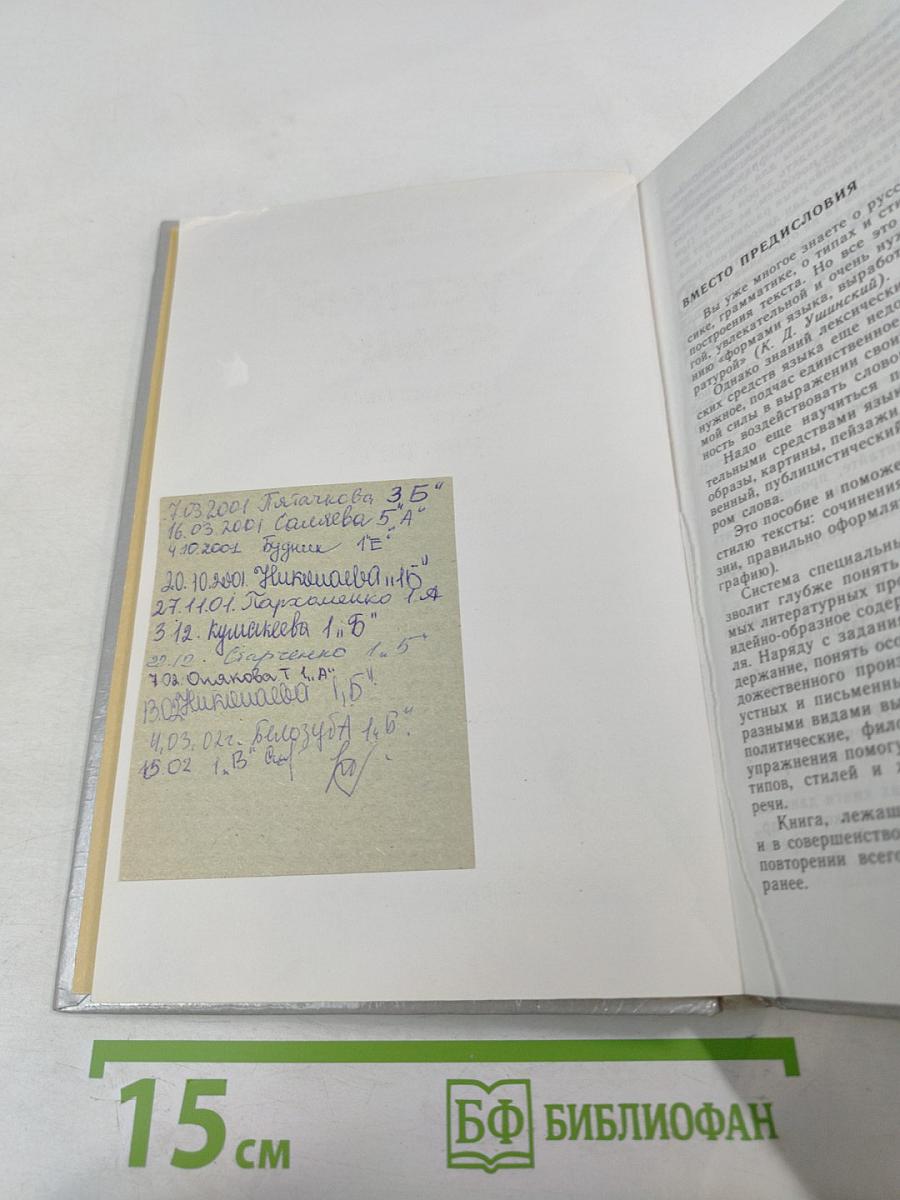 7.03.2001 Пятачкова 3„Б"
16.03.2001 Саляева 5„А"
4.10.2001 Будник 1"Е"
20.10.2001. Николаева „1Б"
27.11.01. Пархоменко 1 А
3 12. Кумакеева 1„Б"
22.12. Старченко 1„Б"
7.02. Опякова Т 1„А"
13.02 Николаева 1„Б".
4.03.02г. Белозуб А 1„Б".
15.02 1„В"
ВМЕСТО ПРЕДИСЛОВИЯ
Вы уже многое знаете о русс
сике, грамматике, о типах и сти
построения текста. Но все это
гой, увлекательной и очень нуж
нию «формами языка, выработ
ратурой» (К. Д. Ушинский).
Однако знаний лексически
ских средств языка еще недо
нужное, подчас единственное
мой силы в выражении свои
ность воздействовать слово
Надо еще научиться п
тельными средствами язык
образы, картины, пейзажи
венный, публицистический
ром слова.
Это пособие и поможе
стилю тексты: сочинения
зии, правильно оформля
графию).
Система специальны
зволит глубже понять
мых литературных пре
идейно-образное содер
ля. Наряду с задания
держание, понять осо
дожественного произ
устных и письменны
разными видами вы
политические, фило
упражнения помогу
типов, стилей и ж
речи.
Книга, лежащ
и в совершенство
повторении всего
ранее.
15 см
БФ БИБЛИОФАН